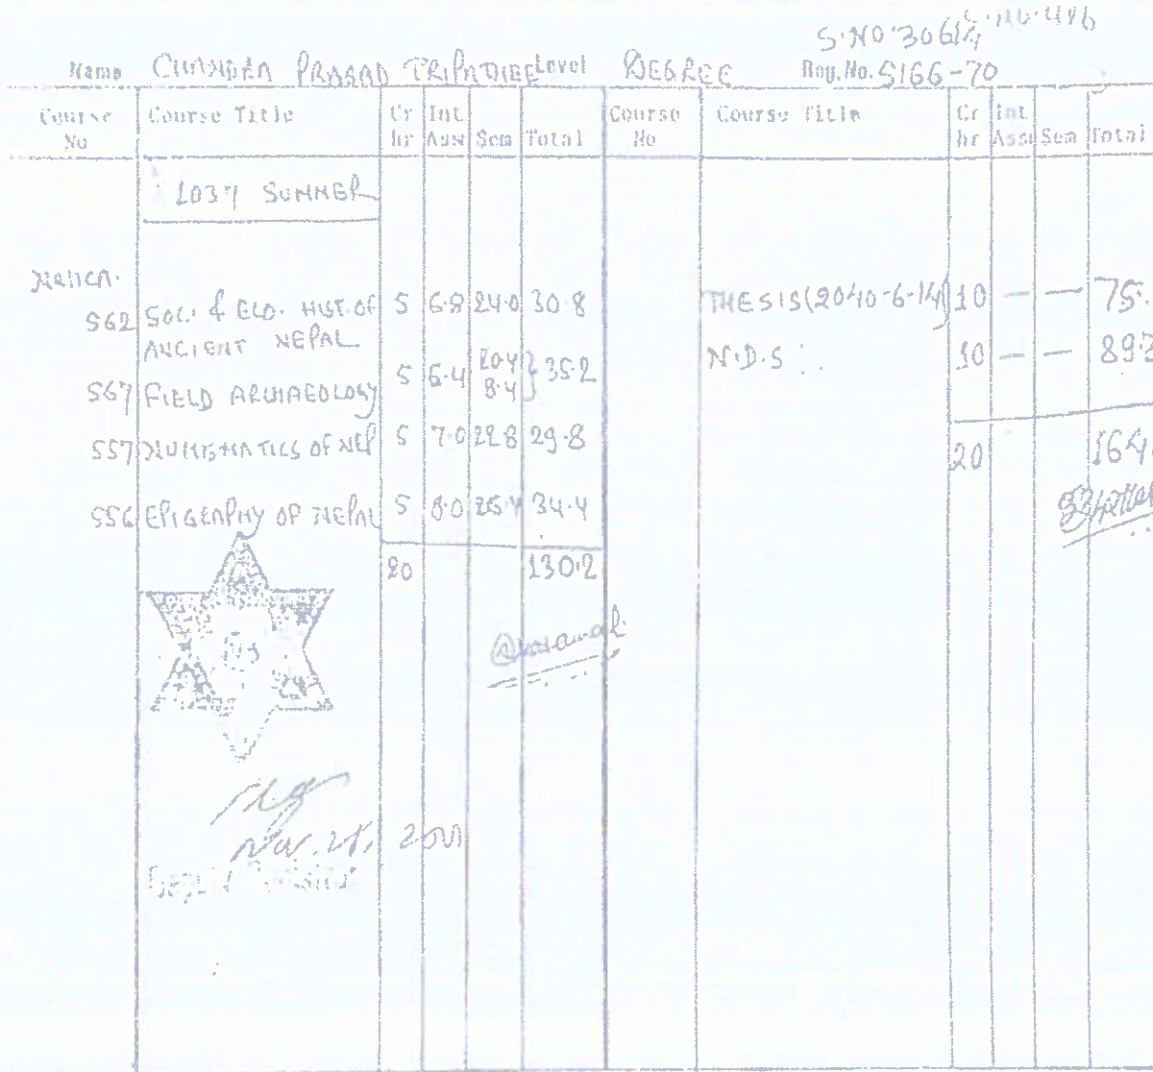 S.NO 30614
Name CHANDRA PRASAD TRIPATHEE Level DEGREE Reg. No. 5166-70
Course No Course Title Cr hr Int Asst Sem Total Course No Course Title Cr hr Int Asst Sem Total
2037 SUMMER
562 SOC. & ECO. HIST. OF ANCIENT NEPAL 5 6.8 24.0 30.8 THESIS (2040-6-14) 10 — — 75.
567 FIELD ARCHAEOLOGY 5 6.4 20.4 8.4 } 35.2 N.D.S 10 — — 89.
557 NUMISMATICS OF NEP 5 7.0 22.8 29.8 20 164.
556 EPIGRAPHY OF NEPAL 5 8.0 26.4 34.4
20 130.2